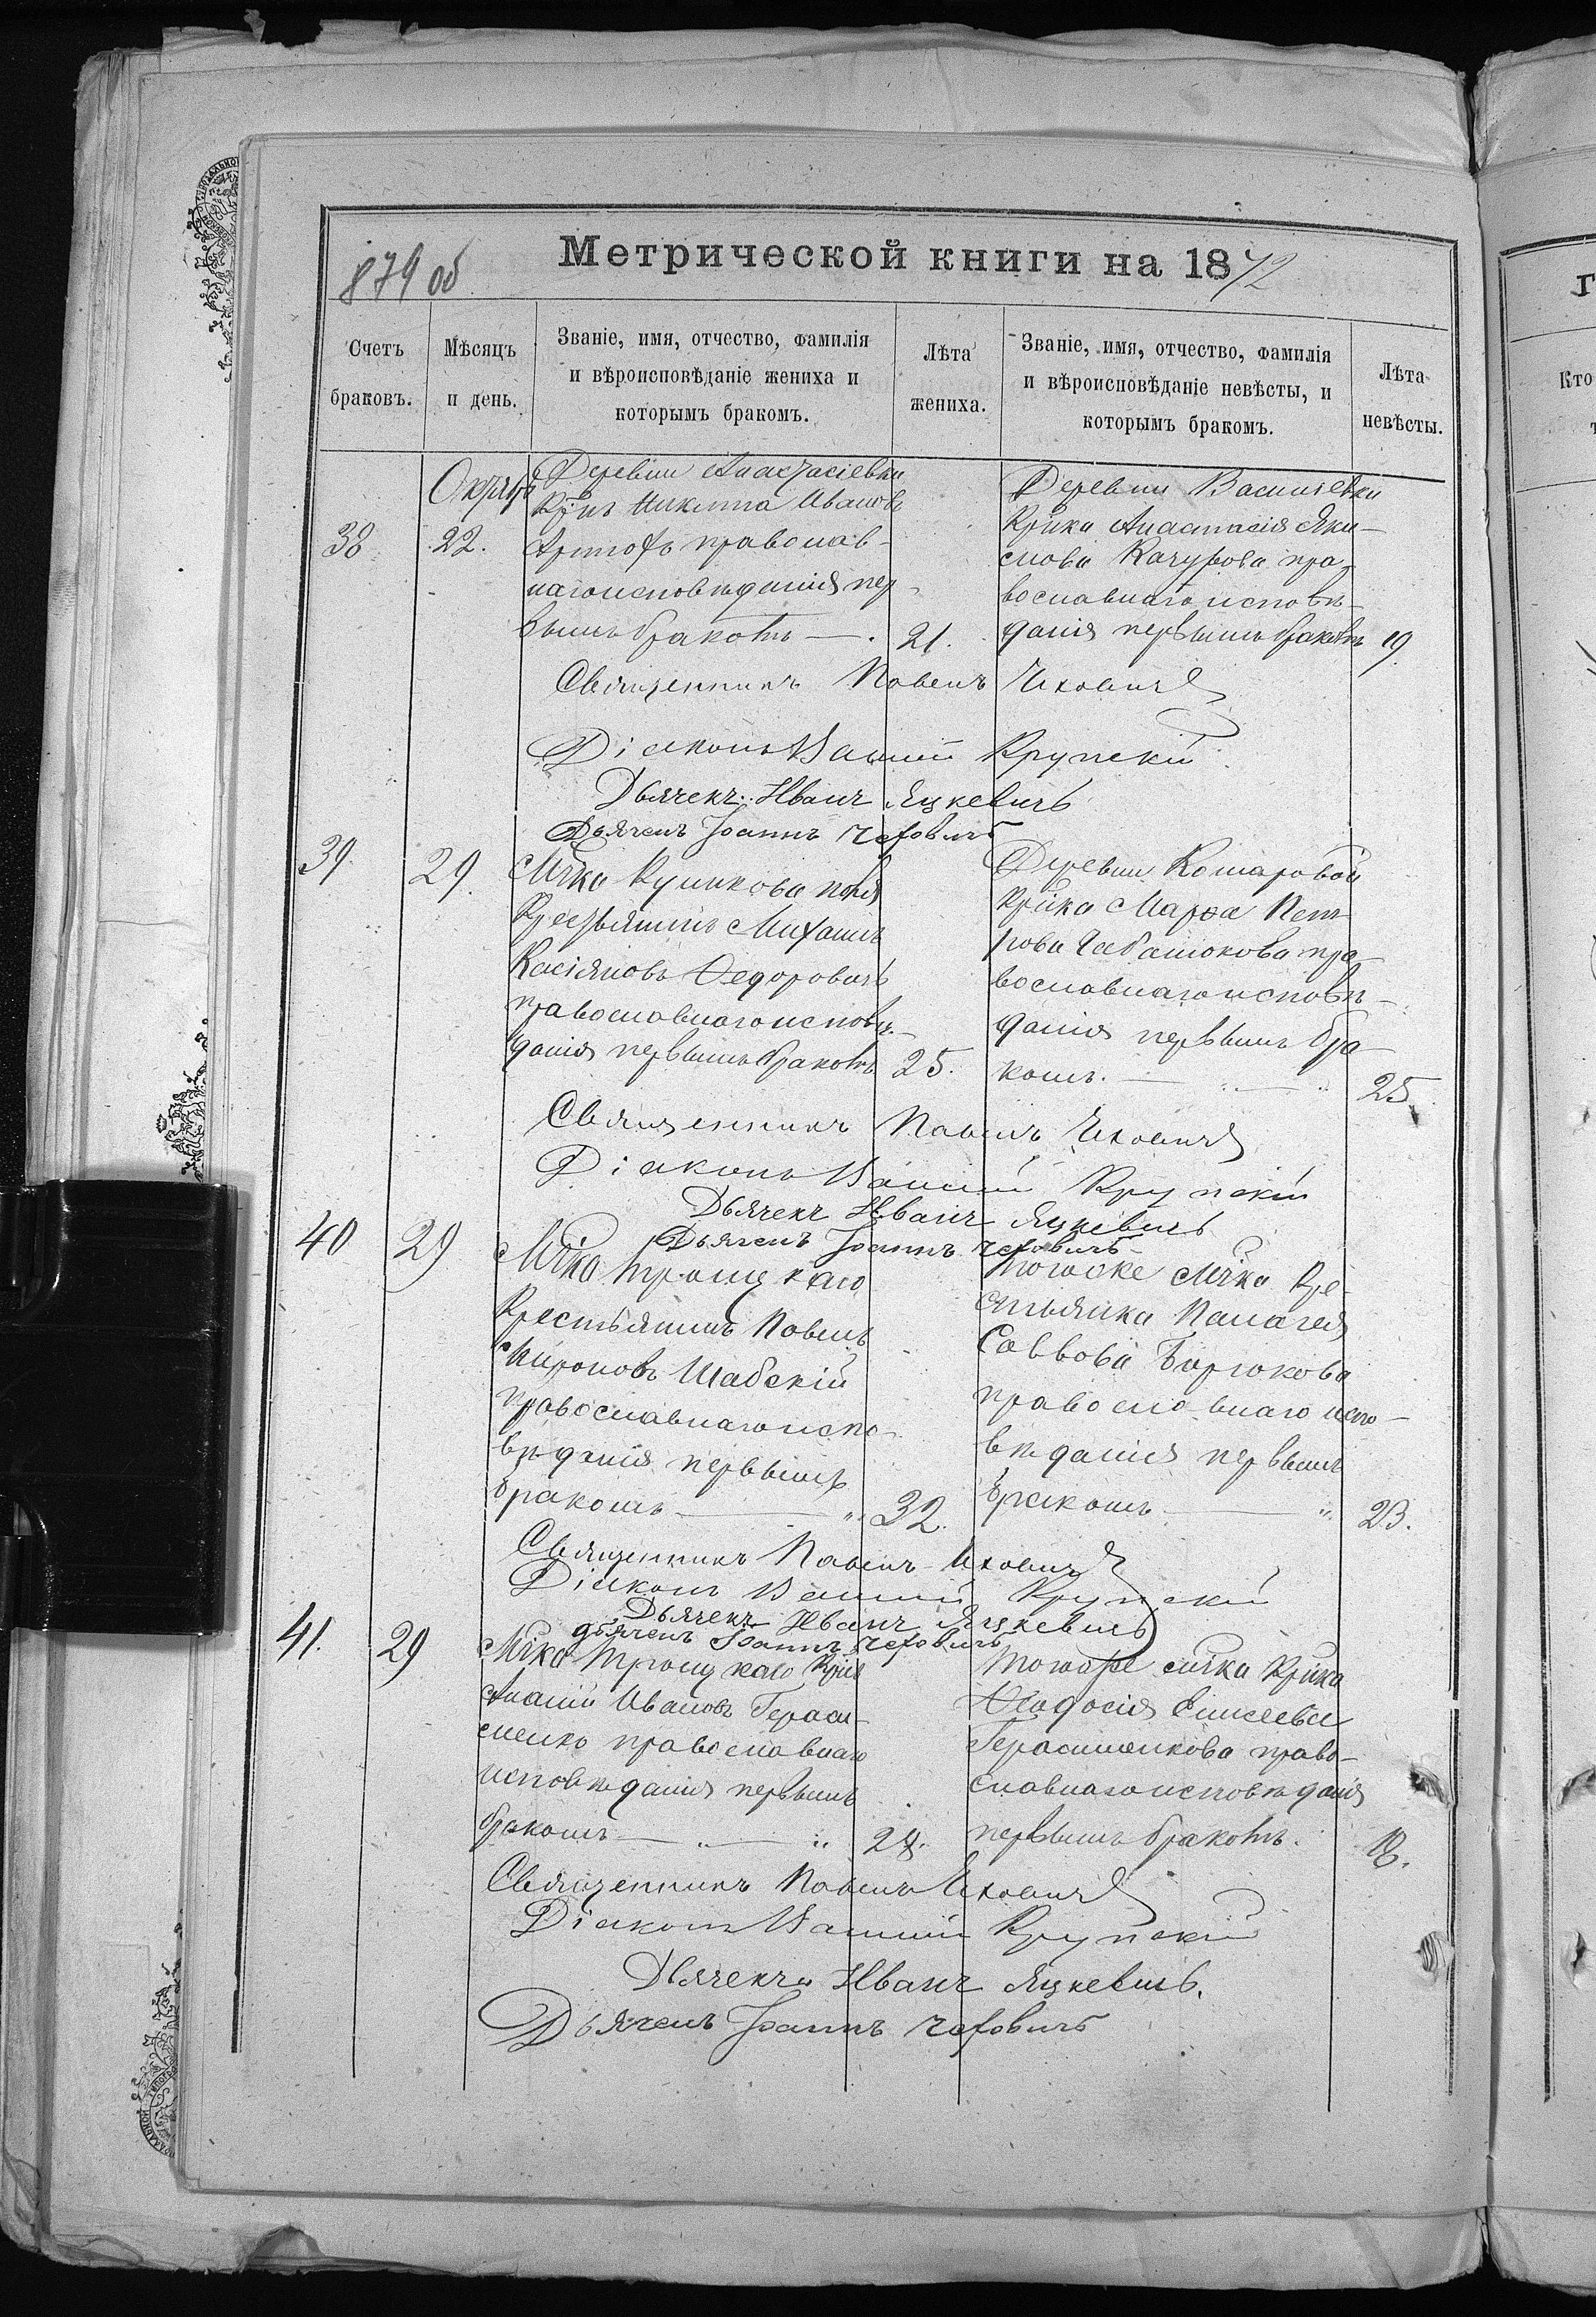 879 об
Метрической книги на 1872
Счетъ браковъ.
Мѣсяцъ и день.
Званіе, имя, отчество, фамилія и вѣроисповѣданіе жениха и которымъ бракомъ.
Лѣта жениха.
Званіе, имя, отчество, фамилія и вѣроисповѣданіе невѣсты, и которымъ бракомъ.
Лѣта невѣсты.
38
22.
Деревни Анастасіевки
Кр͠нъ Никита Ивановъ
православ-
наго исповѣданія пер-
вымъ бракомъ — . 21.
Деревни Василевки
Кр͠нка Анастасія Яки-
мова Качурова пра-
вославнаго исповѣ-
данія первымъ бракомъ 19.
Священникъ Павелъ
Діаконъ Василій Крупскій
Дьячекъ Иванъ Яцкевичъ
Дьячекъ Іоаннъ Чеховичъ
39.
29.
Мѣ͠чка Куликова поля
Крестьянинъ Михаилъ
Касіяновъ Федоровичъ
православнаго исповѣ-
данія первымъ бракомъ 25.
Деревни Комаровой
Кр͠нка Марфа Пет-
рова пра-
вославнаго исповѣ-
данія первымъ бра-
комъ. — 25
Священникъ Павелъ
Діаконъ Василій Крупскій
Дьячекъ Иванъ Яцкевичъ
Дьячекъ Іоаннъ Чеховичъ
40
29
Мѣ͠чка Троицкаго
Крестьянинъ Павелъ
Мироновъ Шабскій
православнаго испо-
вѣданія первымъ
бракомъ — 32.
Тогоже мѣ͠чка Кре-
стьянка Палагея
Саввова Бурюкова
православнаго испо-
вѣданія первымъ
бракомъ — 23.
Священникъ Павелъ
Діаконъ Василій Крупскій
Дьячекъ Иванъ Яцкевичъ
дьячекъ Іоаннъ Чеховичъ
41.
29
Мѣ͠чка Троицкаго Кр͠нъ
Ананій Ивановъ Гераси-
менко православнаго
исповѣданія первымъ
бракомъ —
Тогоже мѣ͠чка Кр͠нка
Феодосія Елисеева
Герасименкова право-
славнаго исповѣданія
первымъ бракомъ. 18.
Священникъ Павелъ
Діаконъ Василій Крупскій
Дьячекъ Иванъ Яцкевичъ.
Дьячекъ Іоаннъ Чеховичъ